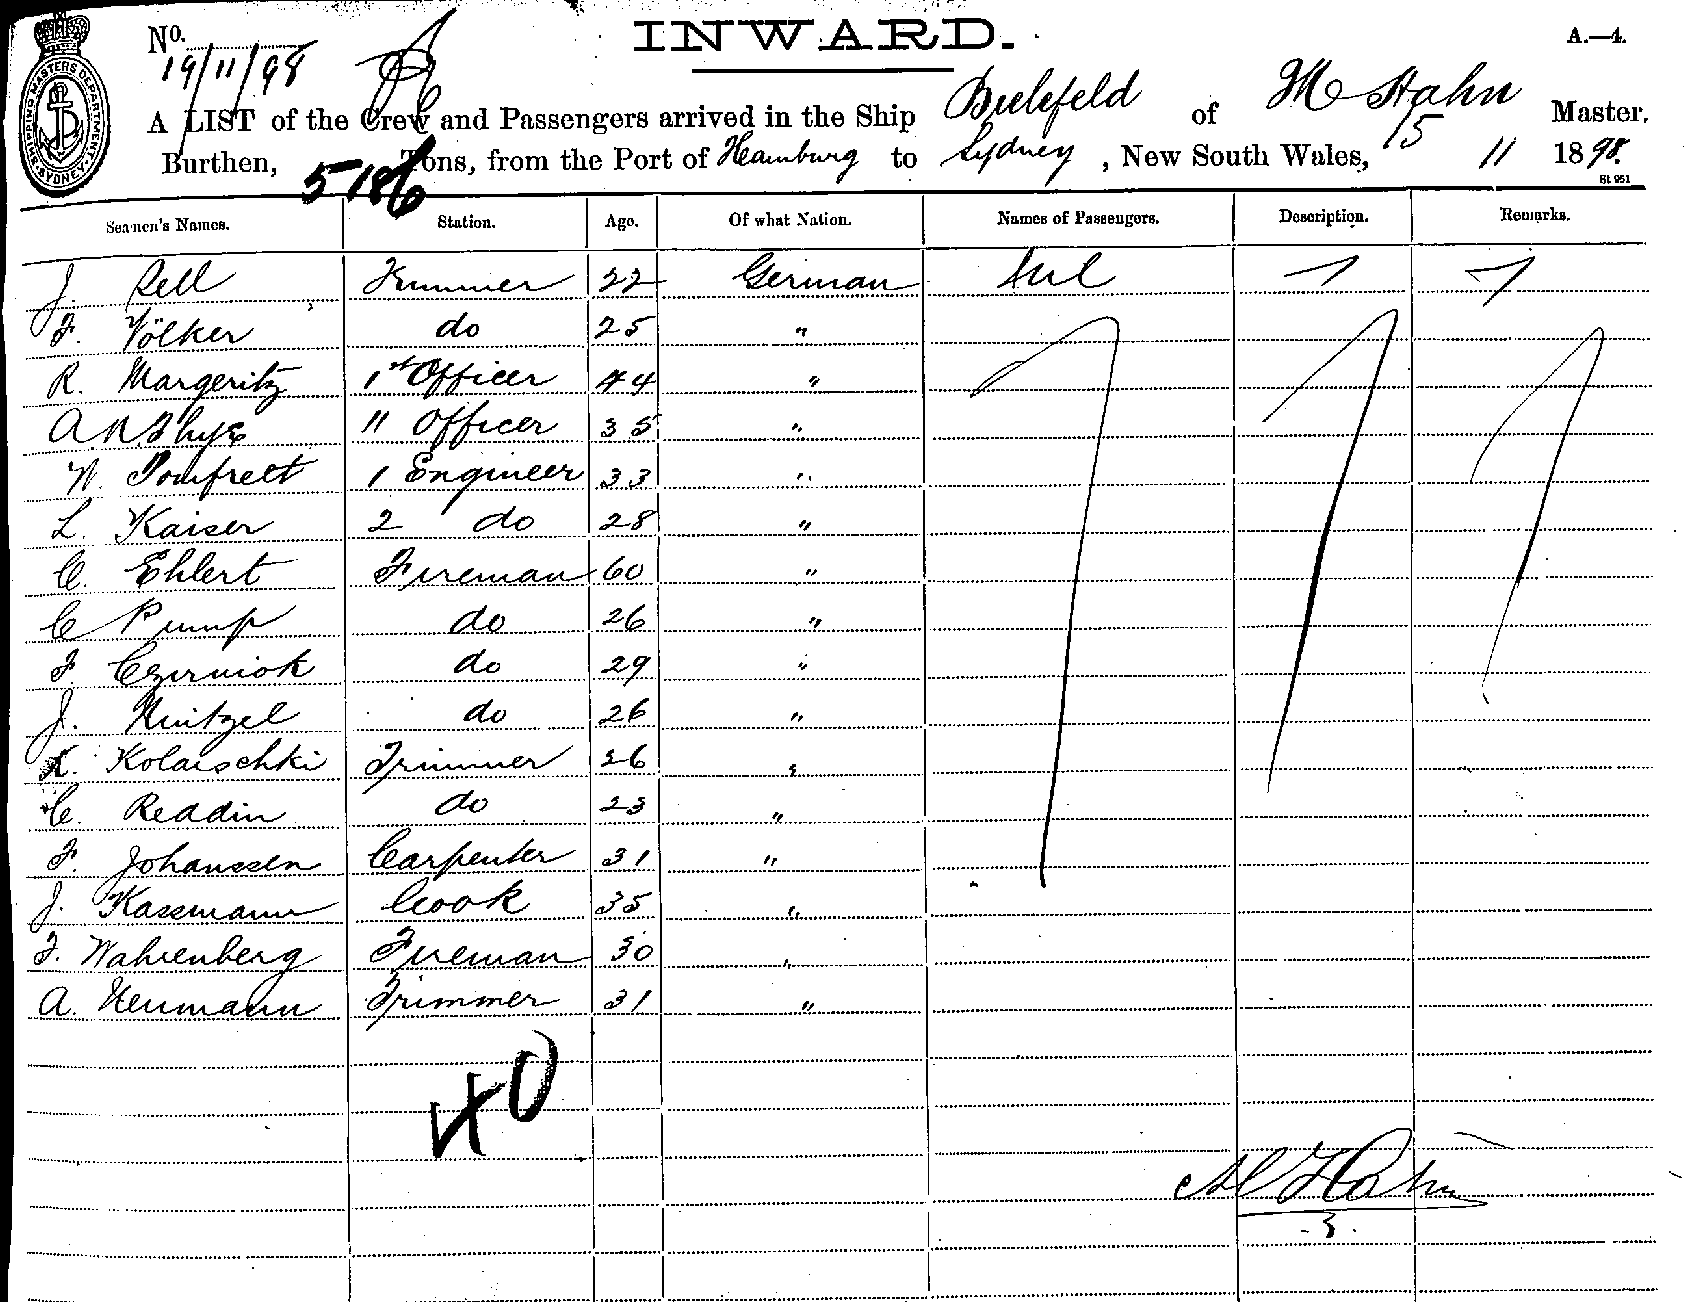 INWARD.
A.—4.
No.
19/11/98
SHIPPING MASTERS DEPARTMENT SYDNEY
A LIST of the Crew and Passengers arrived in the Ship Bielefeld of M Hahn Master,
Burthen, 5186 Tons, from the Port of Hamburg to Sydney, New South Wales, 15 11 1898.
St 951
Seamen's Names. Station. Age. Of what Nation. Names of Passengers. Description. Remarks.
J. Rell Trimmer 22 German Nil
F. Völker do 25 "
R. Margeritz 1st Officer 44 "
A 11 Officer 35 "
W. Pomfrett 1 Engineer 33 "
L. Kaiser 2 do 28 "
C. Ehlert Fireman 60 "
C Pump do 26 "
F. Czirniok do 29 "
J. do 26 "
K. Kolaischki Trimmer 26 "
C. Reddin do 23 "
F. Johanssen Carpenter 31 "
J. Kassmann Cook 35 "
F. Wahrenberg Fireman 30 "
A. Neumann Trimmer 31 "
40
M Hahn
3.